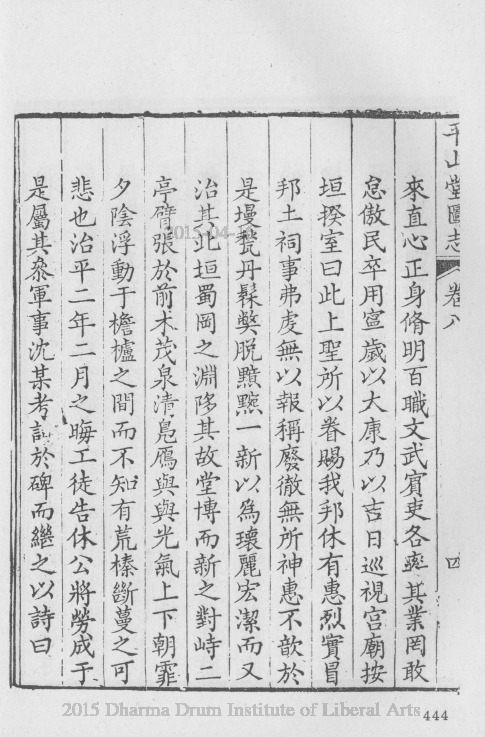 平山堂圖志
卷八
四
來直心正身脩明百職文武賓吏各率其業罔敢
怠傲民卒用寍歲以大康乃以吉日巡視宫廟按
垣揆室曰此上聖所以眷賜我邦休有惠烈實冒
邦土祠事弗虔無以報稱廢徹無所神惠不歆於
是墁甃丹髹獘脱黥黮一新以為瓌麗宏潔而又
治其北垣蜀岡之淵陊其故堂博而新之對峙二
亭臂張於前木茂泉清鳬鴈與與光氣上下朝霏
夕陰浮動于檐櫨之間而不知有荒榛斷蔓之可
悲也治平二年二月之晦工徒告休公將勞成于
是屬其叅軍事沈某考詞於碑而繼之以詩曰
2015-04-
2015 Dharma Drum Institute of Liberal Arts
444